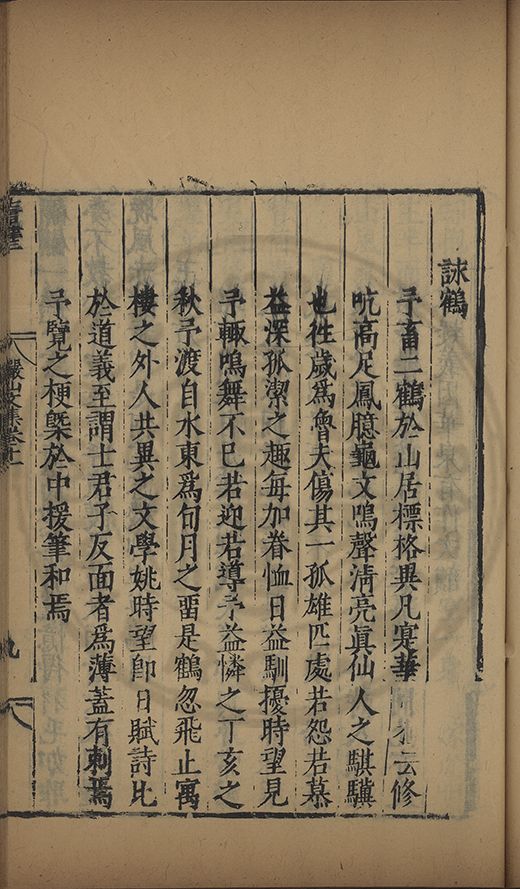 詠鶴
予畜二鶴於山居標格異凡寔華云修
吭高足鳳臆龜文鳴聲淸亮眞仙人之騏驥
也徃歲爲魯夫傷其一孤雄匹處若怨若慕
益深孤潔之趣每加眷恤日益馴擾時望見
予輙鳴舞不已若迎若導予益憐之丁亥之
秋予渡自水東爲旬月之畱是鶴忽飛止寓
樓之外人共異之文學姚時望卽日賦詩比
於道義至謂士君子反面者爲薄蓋有刺焉
予覽之梗槩於中援筆和焉
儼山文集卷十一
九